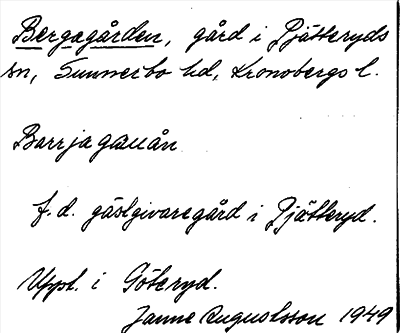 Bergagården, gård i Pjätteryds
sn, Sunnerbo hd, Kronobergs l.
Barrjagåuån
f.d. gästgivaregård i Pjätteryd.
Uppt. i Göteryd.
Janne Augustsson 1949